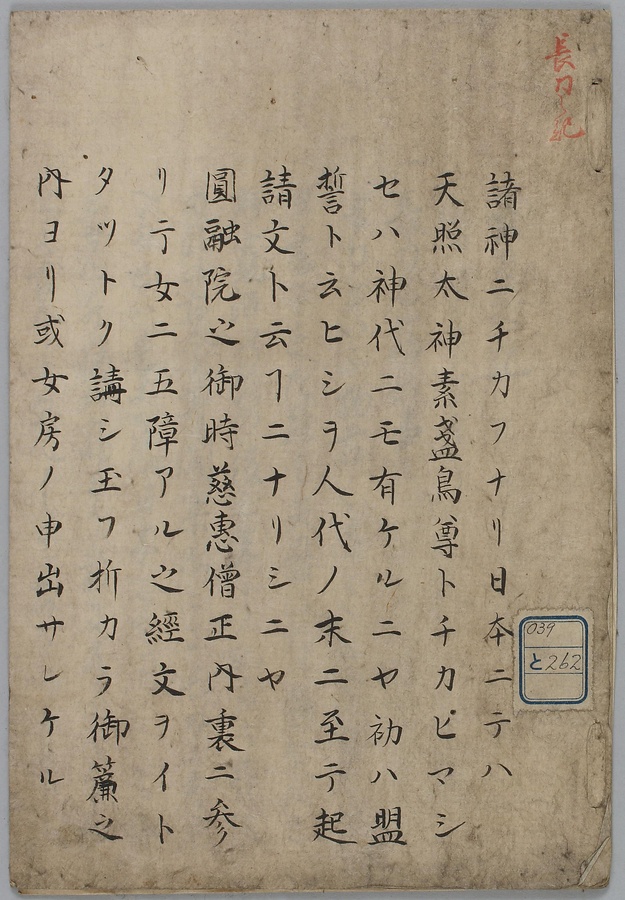 諸神ニチカフナリ日本ニテハ
天照太神素盞烏尊トチカヒマシ
セハ神代ニモ有ケルニヤ初ハ盟
誓ト云ヒシヲ人代ノ末ニ至テ起
請文ト云ヿニナリシニヤ
圓融院之御時慈惠僧正内裏ニ参
リテ女ニ五障アル之經文ヲイト
タツトク講シ玉フ折カラ御簾之
内ヨリ或女房ノ申出サレケル
039
と262